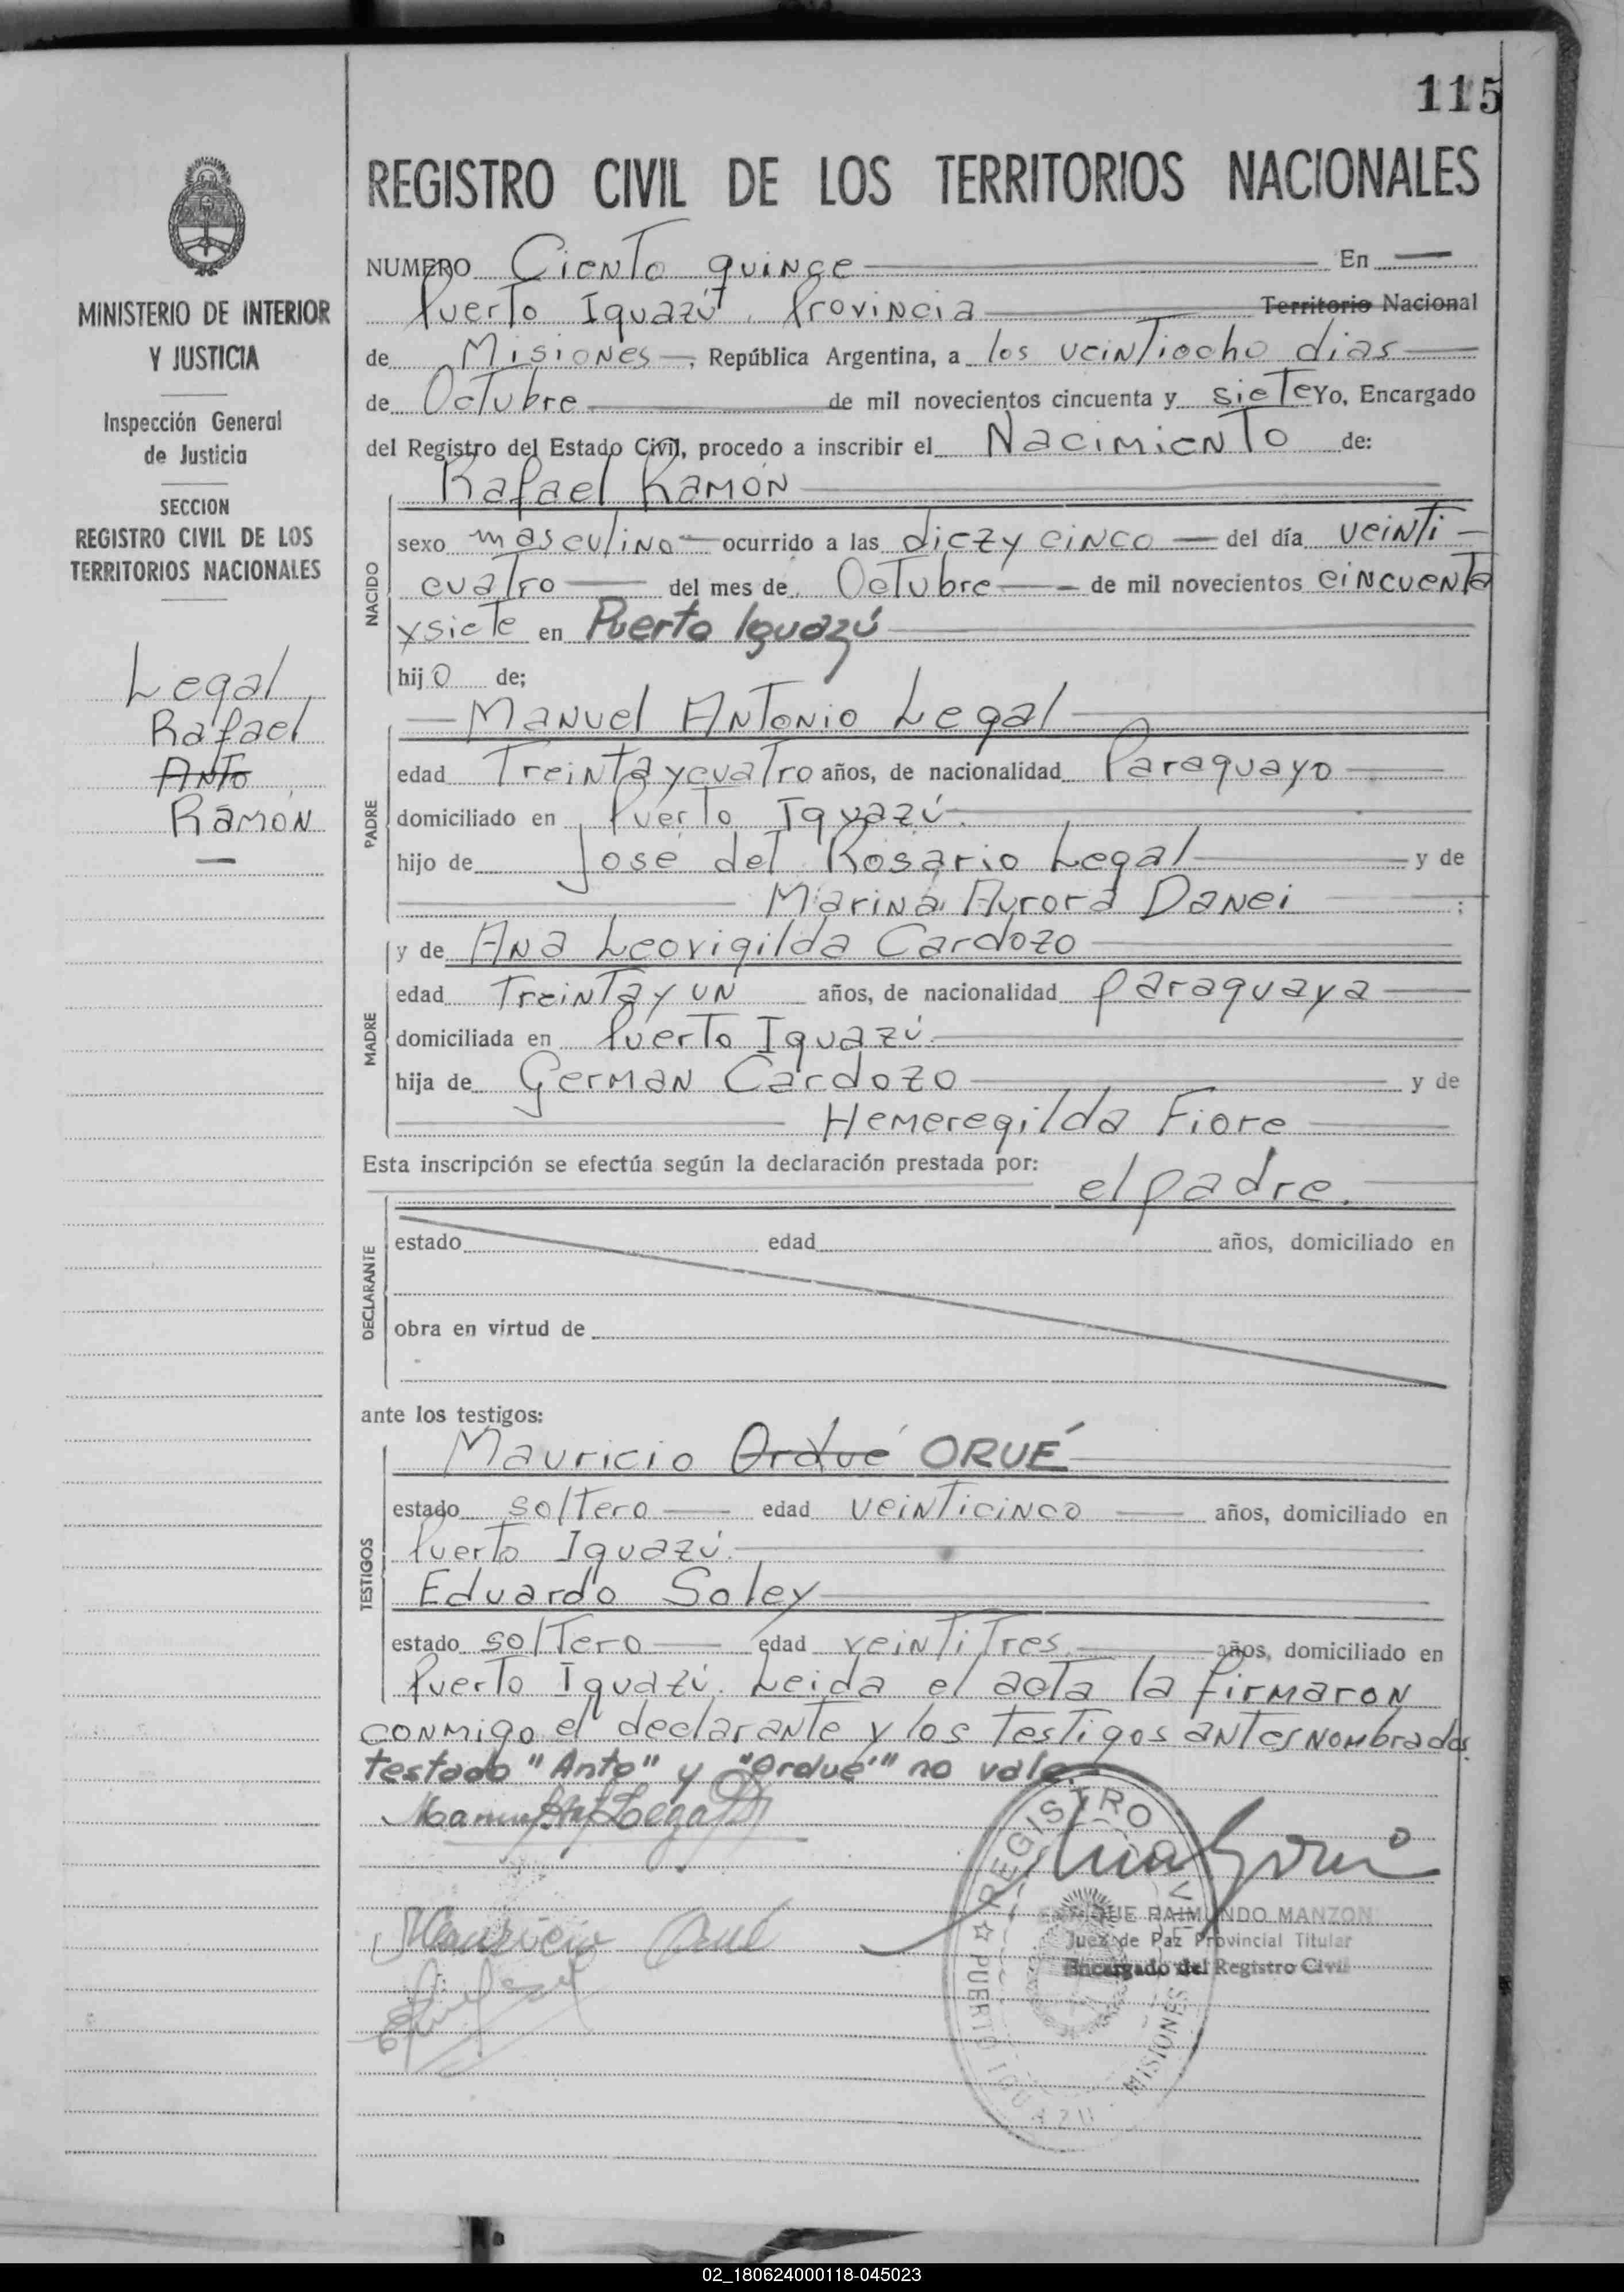 115
REGISTRO CIVIL DE LOS TERRITORIOS NACIONALES
MINISTERIO DE INTERIOR
Y JUSTICIA
Inspección General
de Justicia
SECCION
REGISTRO CIVIL DE LOS
TERRITORIOS NACIONALES
Legal
Rafael
Anto
Ramón
NUMERO Ciento quince En
Puerto Iguazú, Provincia Territorio Nacional
de Misiones, República Argentina, a los veintiocho dias
de Octubre de mil novecientos cincuenta y siete Yo, Encargado
del Registro del Estado Civil, procedo a inscribir el Nacimiento de:
Rafael Ramón
NACIDO
sexo masculino ocurrido a las diez y cinco del día veinti
cuatro del mes de Octubre de mil novecientos cincuenta
y siete en Puerto Iguazú
hijo de;
Manuel Antonio Legal
PADRE
edad Treinta y cuatro años, de nacionalidad Paraguayo
domiciliado en Puerto Iguazú.
hijo de José del Rosario Legal y de
Marina Aurora Danei ;
y de Ana Leovigilda Cardozo
MADRE
edad Treinta y un años, de nacionalidad paraguaya
domiciliada en Puerto Iguazú.
hija de German Cardozo y de
Hemeregilda Fiore
Esta inscripción se efectúa según la declaración prestada por:
el padre.
DECLARANTE
estado edad años, domiciliado en
obra en virtud de
ante los testigos:
Mauricio Ordué ORUÉ
TESTIGOS
estado soltero edad veinticinco años, domiciliado en
Puerto Iguazú.
Eduardo Soley
estado soltero edad veintitres años, domiciliado en
Puerto Iguazú. Leida el acta la firmaron
conmigo el declarante y los testigos antes nombrados.
testado "Anto" y "Ordué" no vale.
Legal
Mauricio Orué
REGISTRO CIVIL
PUERTO IGUAZU MISIONES
ENRIQUE RAIMUNDO MANZON
Juez de Paz Provincial Titular
Encargado del Registro Civil
02_180624000118-045023